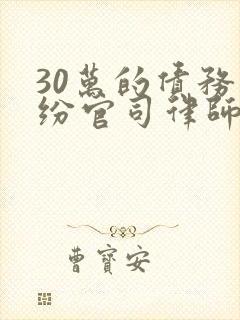 30萬的債務
紛官司律師
曹寶安